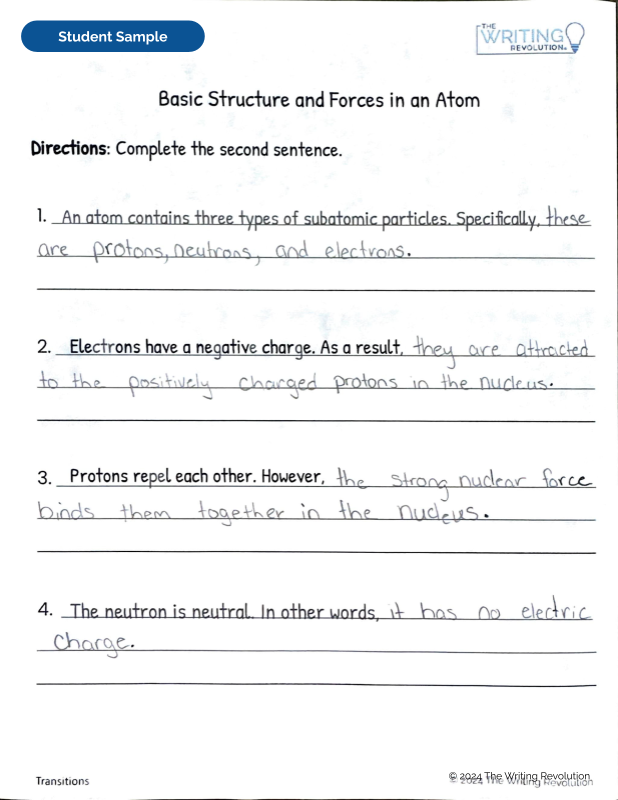 Student Sample
THE
WRITING
REVOLUTION®
Basic Structure and Forces in an Atom
Directions: Complete the second sentence.
1. An atom contains three types of subatomic particles. Specifically, these
are protons, neutrons, and electrons.
2. Electrons have a negative charge. As a result, they are attracted
to the positively charged protons in the nucleus.
3. Protons repel each other. However, the strong nuclear force
binds them together in the nucleus.
4. The neutron is neutral. In other words, it has no electric
charge.
Transitions
© 2024 The Writing Revolution